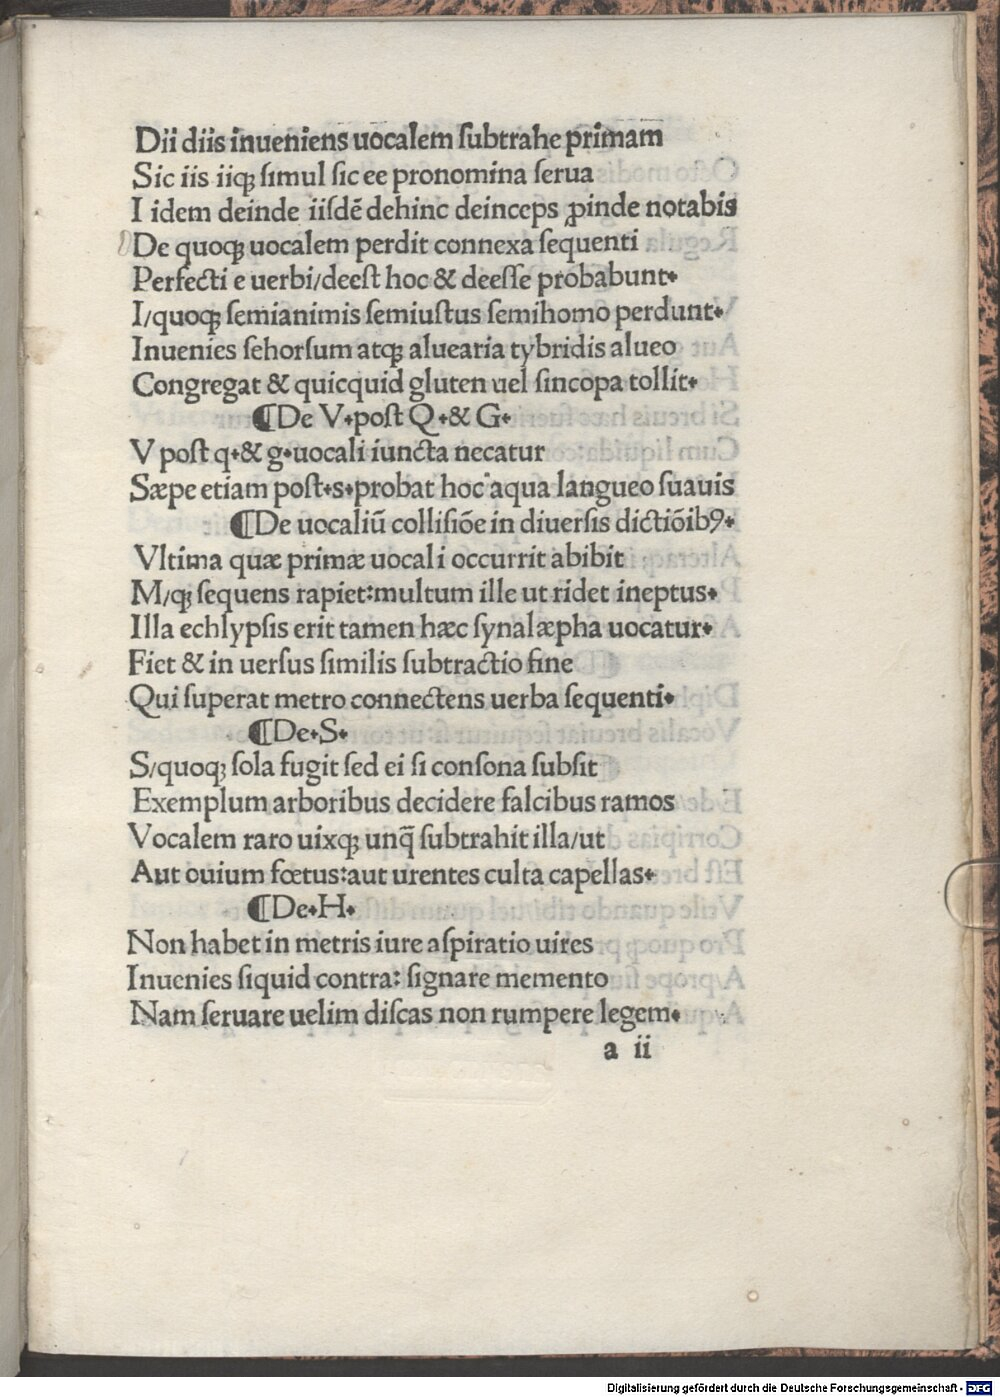 Dii diis inueniens uocalem ſubtrahe primam
Sic iis iiqꝫ ſimul ſic ee pronomina ſerua
I idem deinde iiſdē dehinc deinceps ꝓinde notabis
De quoqꝫ uocalem perdit connexa ſequenti
Perfecti e uerbi/deeſt hoc & deeſſe probabunt.
I/quoqꝫ ſemianimis ſemiuſtus ſemihomo perdunt.
Inuenies ſehorſum atqꝫ aluearia tybridis alueo
Congregat & quicquid gluten uel ſincopa tollit.
¶De V.poſt Q.& G.
V poſt q.& g.uocali iuncta necatur
Sæpe etiam poſt.s.probat hoc aqua langueo ſuauis
¶De uocaliū colliſiōe in diuerſis dictiōibꝰ.
Vltima quæ primæ uocali occurrit abibit
M/qꝫ ſequens rapiet:multum ille ut ridet ineptus.
Illa echlypſis erit tamen hæc ſynalæpha uocatur.
Fiet & in uerſus ſimilis ſubtractio fine
Qui ſuperat metro connectens uerba ſequenti.
¶De.S.
S/quoqꝫ ſola fugit ſed ei ſi conſona ſubſit
Exemplum arboribus decidere falcibus ramos
Vocalem raro uixqꝫ unq̄ ſubtrahit illa/ut
Aut ouium fœtus:aut urentes culta capellas.
¶De.H.
Non habet in metris iure aſpiratio uires
Inuenies ſiquid contra: ſignare memento
Nam ſeruare uelim diſcas non rumpere legem.
a ii
Digitalisierung gefördert durch die Deutsche Forschungsgemeinschaft - DFG